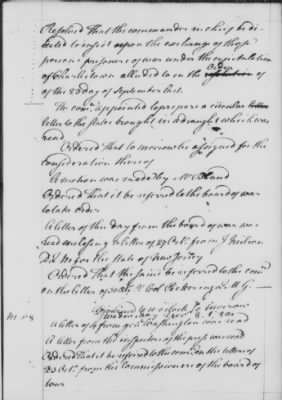 Resolved That the commander in chief be di-
rected to insist upon the exchange of those
persons prisoners of war under the capitulation
of Charlestown alluded to in the resolution Order of
of the 22d day of September last.
The com.ee appointed to prepare a circular letter
letter to the states brought in a draught which was
read
Ordered That to morrow be assigned for the
consideration thereof
A motion was made by Mr Bland
Ordered That it be referred to the board of war
to take order.
A letter of this day from the board of war was
read enclosing a letter of 29 Oct.r from J Neilson
D Q M for the State of New Jersey
Ordered That the same be referred to the com.ee
on the letter of 30 Oct. of Col Pickering Q M G
Adjourned to 10 o'Clock to Morrow
Wednesday Nov 8. 1780
A letter of 4 from gen.l Washington was read
A letter from the inspectors of the press was read
Ordered That it be referred to the com.ee on the letter of
23 Oct.r from the commissioners of the board of
war